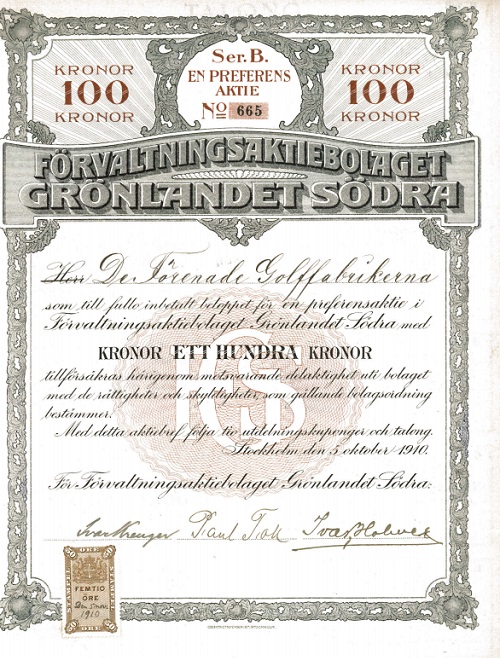 TALONG
Ser. B.
EN PREFERENS
AKTIE
No 665
KRONOR
100
KRONOR
KRONOR
100
KRONOR
FÖRVALTNINGSAKTIEBOLAGET
GRÖNLANDET SÖDRA
Herr De Förenade Golffabrikerna
som till fullo inbetalt beloppet för en preferensaktie i
Förvaltningsaktiebolaget Grönlandet Södra med
KRONOR ETT HUNDRA KRONOR
tillförsäkras härigenom motsvarande delaktighet uti bolaget
med de rättigheter och skyldigheter, som gällande bolagsordning
bestämmer.
Med detta aktiebref följa tio utdelningskuponger och talong.
Stockholm den 5 oktober 1910.
För Förvaltningsaktiebolaget Grönlandet Södra:
Ivar Kreuger Paul Toll
50 ÖRE 50
FEMTIO
ÖRE
1910
50 ÖRE 50